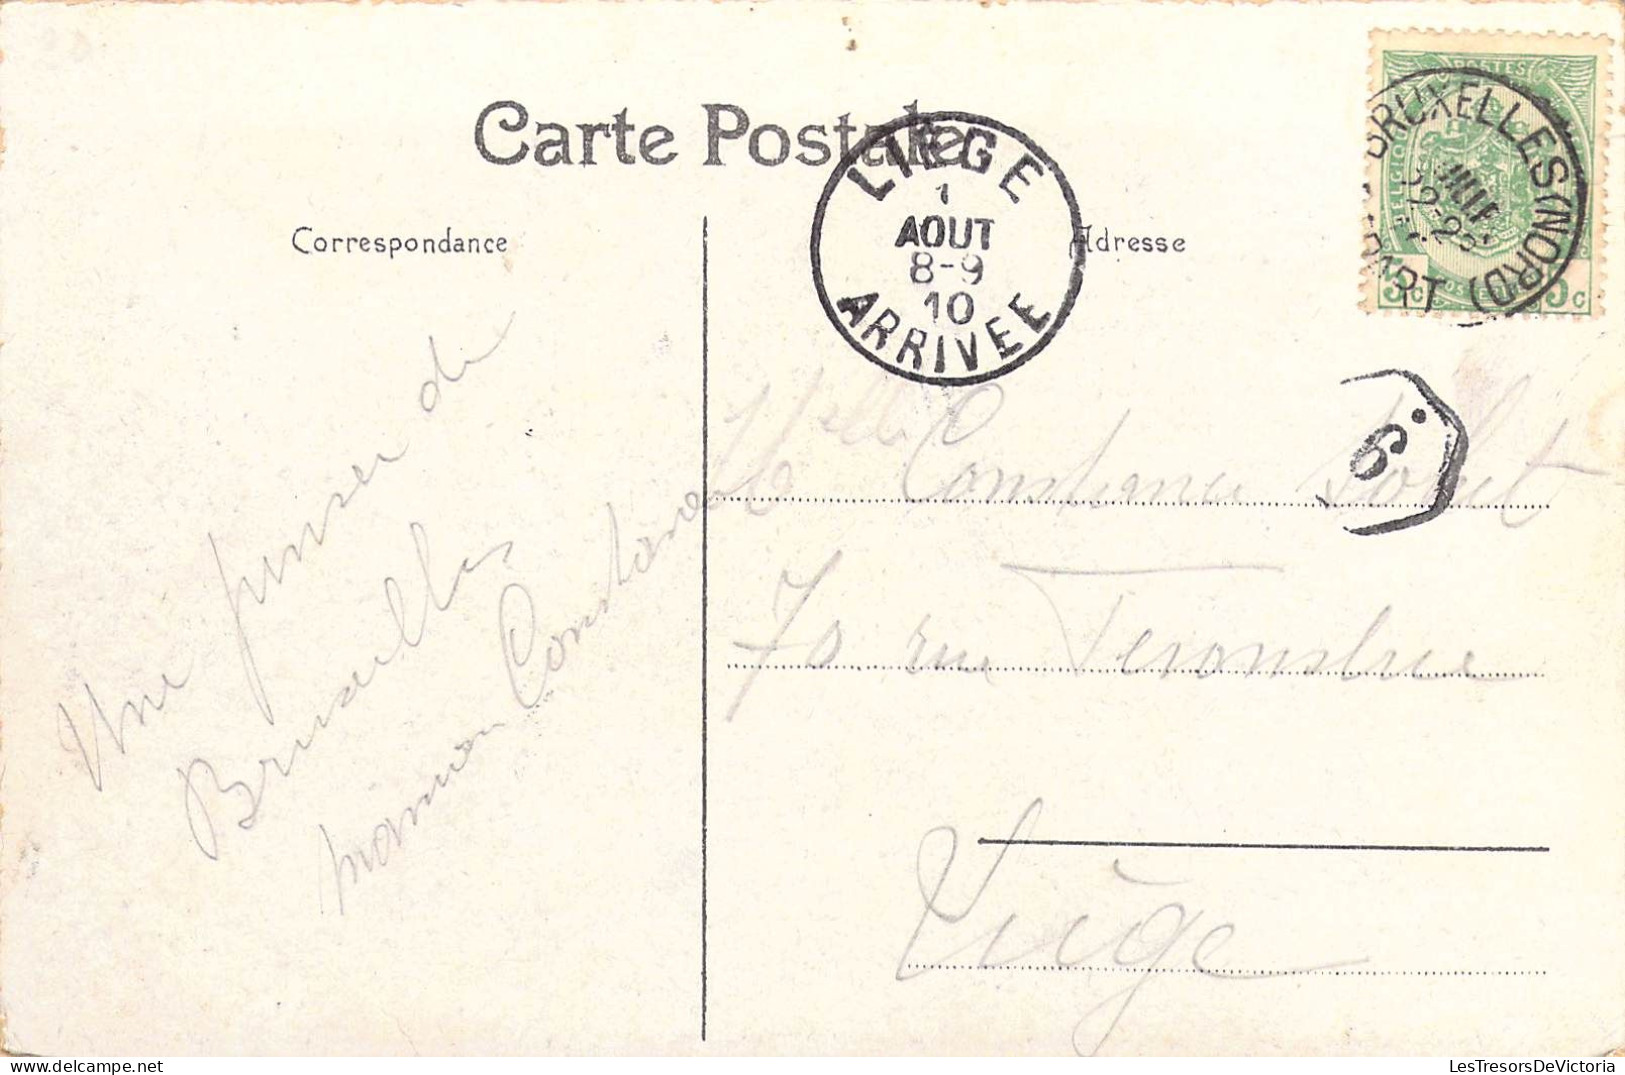 Carte Postale
Correspondance
Adresse
LIEGE
1
AOUT
8-9
10
ARRIVEE
POSTES
BELGIQUE
BRUXELLES (NORD)
JUIL
22-23
DEPART
5c 5c
6
Une pensée de
Bruxelles
maman Constance
Melle Constance
70 rue Feronstrée
Liège
LesTresorsDeVictoria